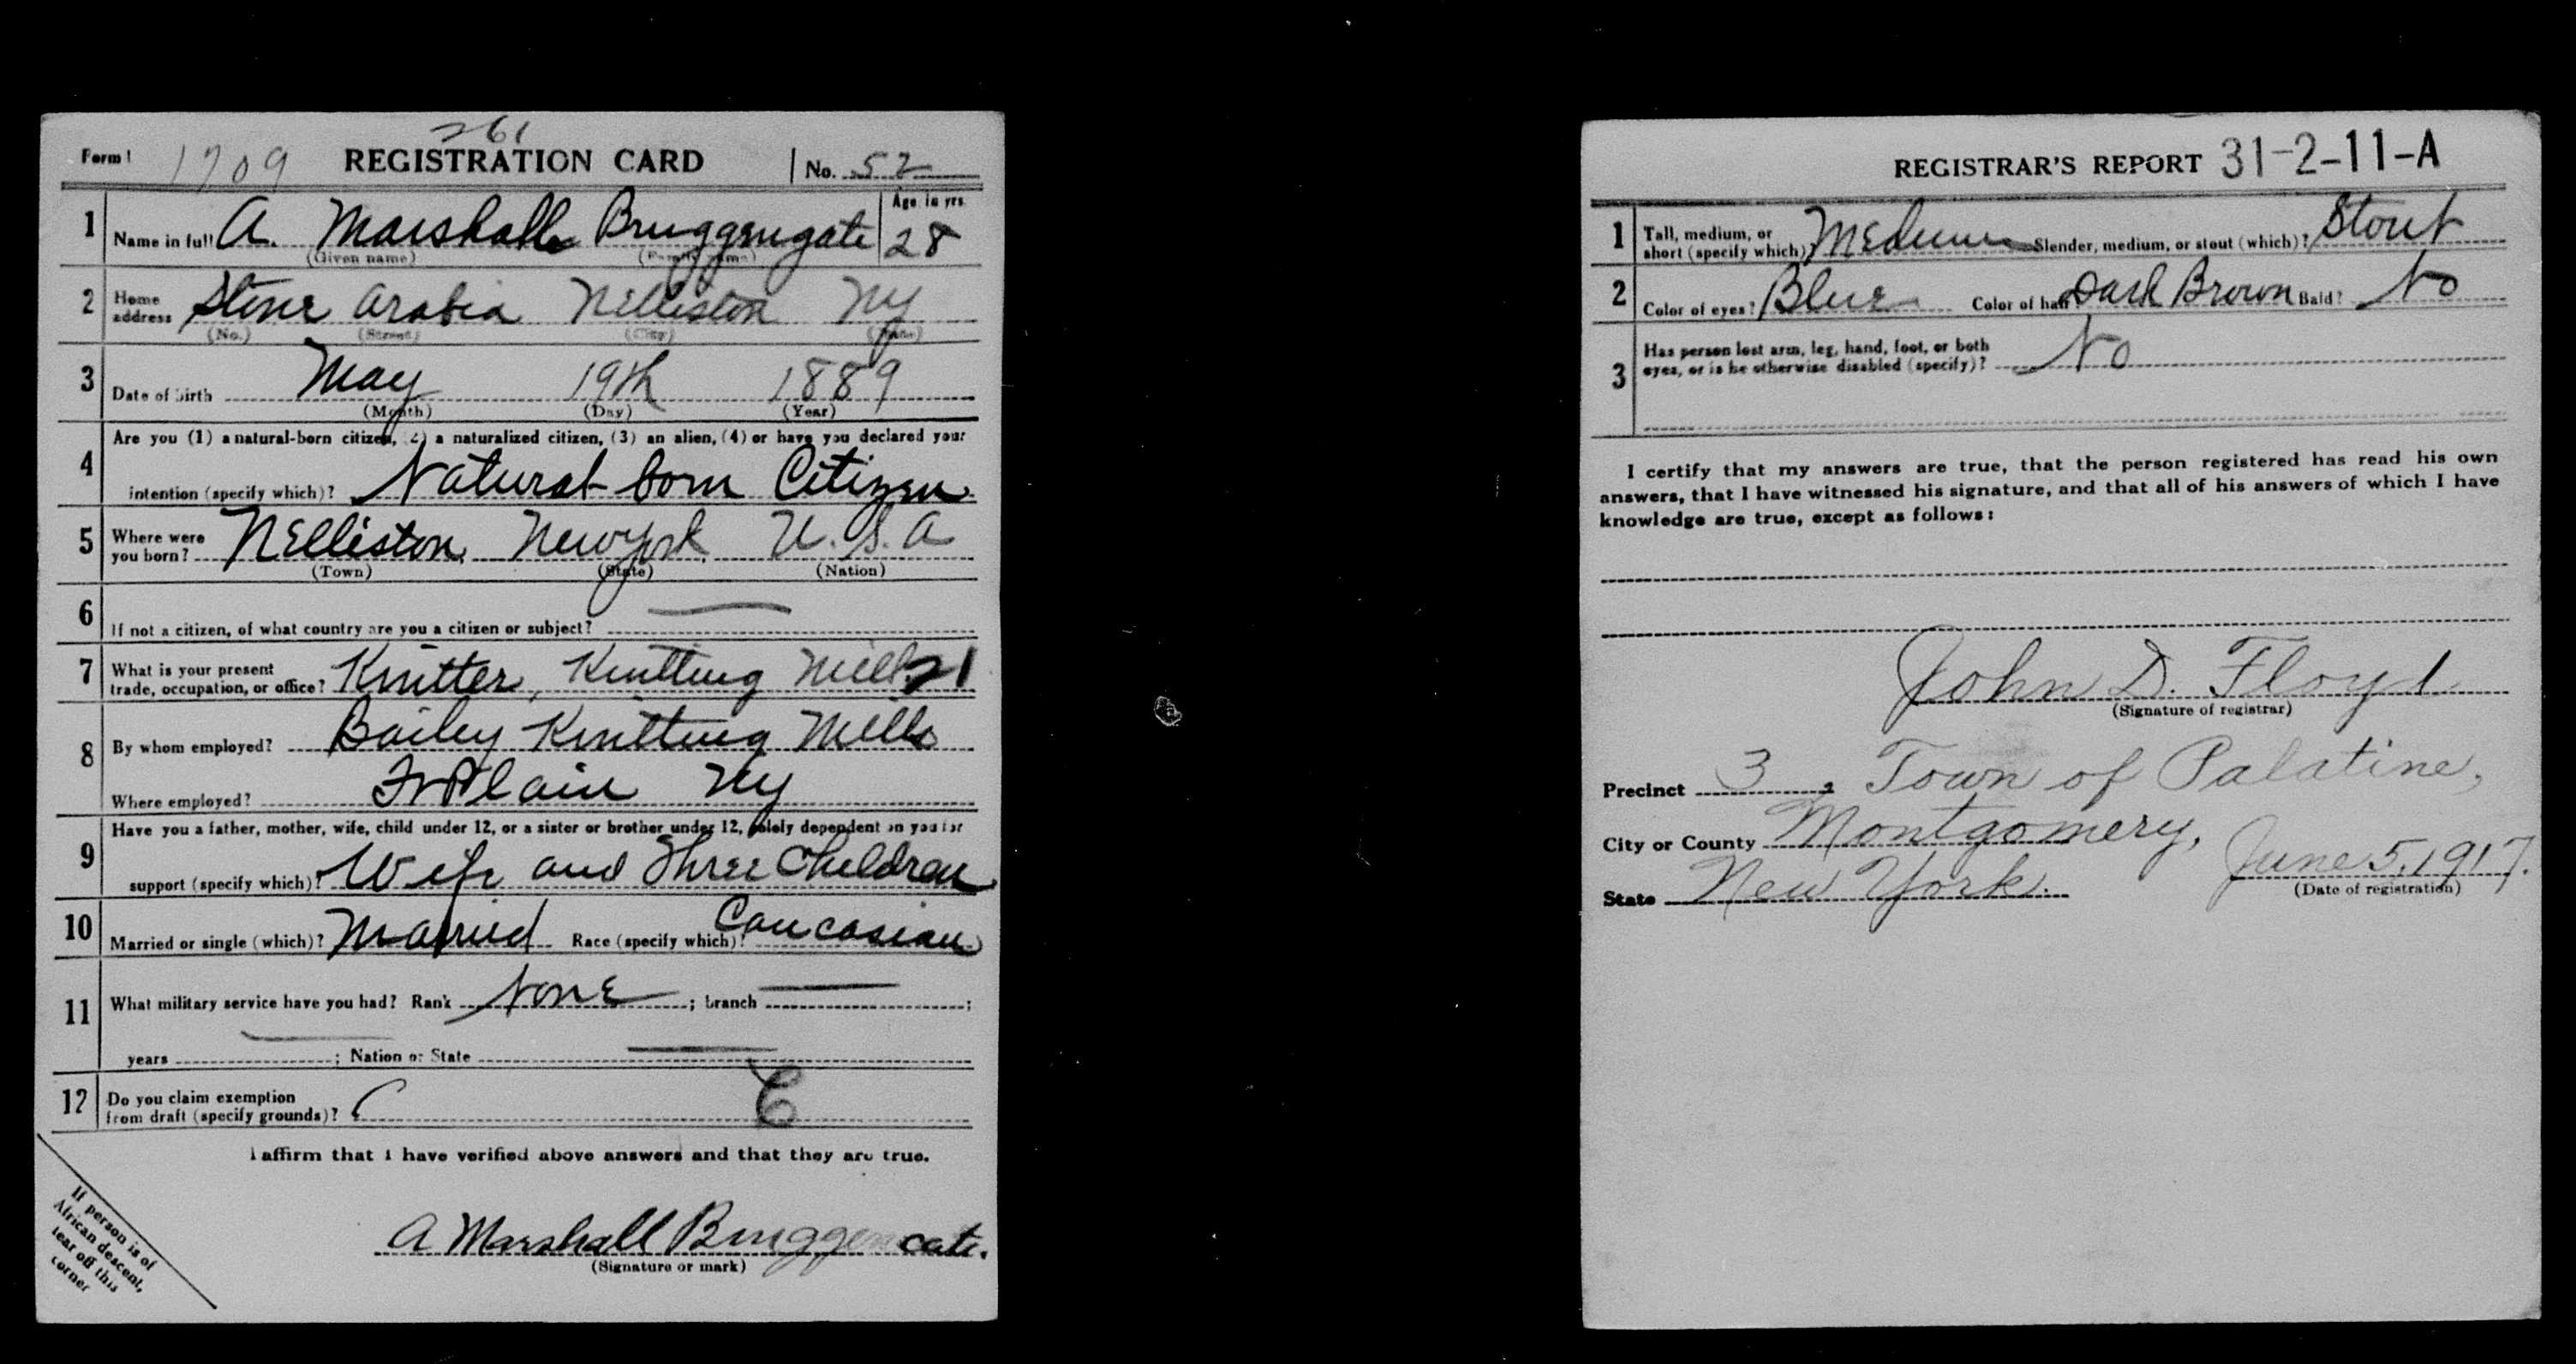 261
Form 1 1709 REGISTRATION CARD No. 52
1 Name in full A. Marshall Bruggengate Age in yrs. 28
(Given name) (Family name)
2 Home address Stone Arabia Nelliston NY
(No.) (Street) (City) (State)
3 Date of birth May 19th 1889
(Month) (Day) (Year)
4 Are you (1) a natural-born citizen, (2) a naturalized citizen, (3) an alien, (4) or have you declared your
intention (specify which)? Natural born Citizen
5 Where were you born? Nelliston, New York, U.S.A
(Town) (State) (Nation)
6 If not a citizen, of what country are you a citizen or subject? —
7 What is your present trade, occupation, or office? Knitter, Knitting Mill 21
8 By whom employed? Bailey Knitting Mills
Where employed? Ft Plain NY
9 Have you a father, mother, wife, child under 12, or a sister or brother under 12, solely dependent on you for
support (specify which)? Wife and Three Children
10 Married or single (which)? Married Race (specify which)? Caucasian
11 What military service have you had? Rank None ; branch — ;
years — ; Nation or State —
12 Do you claim exemption from draft (specify grounds)?
I affirm that I have verified above answers and that they are true.
A Marshall Bruggencate.
(Signature or mark)
If person is of
African descent,
tear off this
corner
REGISTRAR'S REPORT 31-2-11-A
1 Tall, medium, or short (specify which)? Medium Slender, medium, or stout (which)? Stout
2 Color of eyes? Blue Color of hair? Dark Brown Bald? No
3 Has person lost arm, leg, hand, foot, or both
eyes, or is he otherwise disabled (specify)? No
I certify that my answers are true, that the person registered has read his own
answers, that I have witnessed his signature, and that all of his answers of which I have
knowledge are true, except as follows:
John D. Floyd
(Signature of registrar)
Precinct 3, Town of Palatine,
City or County Montgomery,
State New York. June 5, 1917.
(Date of registration)